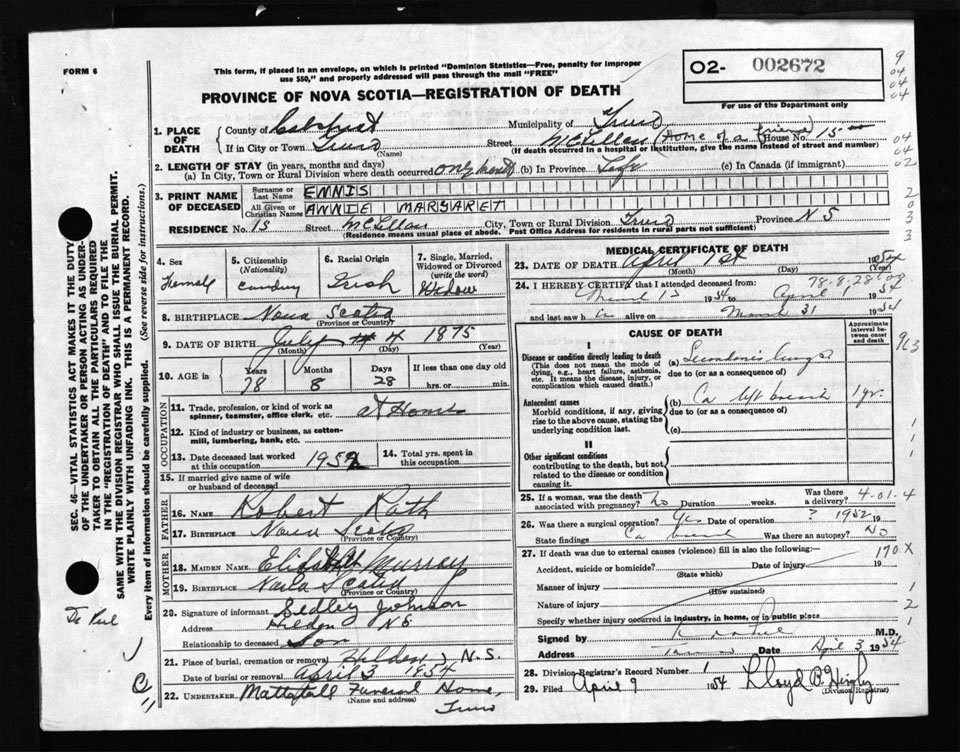 FORM 6
This form, if placed in an envelope, on which is printed "Dominion Statistics—Free, penalty for improper
use $50," and properly addressed will pass through the mail "FREE"
O2- 002672
For use of the Department only
PROVINCE OF NOVA SCOTIA—REGISTRATION OF DEATH
1. PLACE OF DEATH
County of Colchester Municipality of Truro
If in City or Town Truro (Name) Street McLellan (Home of a friend) House No. 15
(If death occurred in a hospital or institution, give the name instead of street and number)
2. LENGTH OF STAY (in years, months and days)
(a) In City, Town or Rural Division where death occurred one month (b) In Province Life (c) In Canada (if immigrant)
3. PRINT NAME OF DECEASED
Surname or Last Name ENNIS
All Given or Christian Names ANNIE MARGARET
RESIDENCE No. 15 Street McLellan City, Town or Rural Division Truro Province N S
(Residence means usual place of abode. Post Office Address for residents in rural parts not sufficient)
4. Sex Female
5. Citizenship (Nationality)
6. Racial Origin Irish
7. Single, Married, Widowed or Divorced (write the word) Widow
8. BIRTHPLACE Nova Scotia
(Province or Country)
9. DATE OF BIRTH July 4 1875
(Month) (Day)
10. AGE in Years 78 Months 8 Days 28 If less than one day old hrs. or min.
OCCUPATION
11. Trade, profession, or kind of work as spinner, teamster, office clerk, etc. at Home
12. Kind of industry or business, as cotton-mill, lumbering, bank, etc.
13. Date deceased last worked at this occupation 1952
14. Total yrs. spent in this occupation
15. If married give name of wife or husband of deceased
FATHER
16. NAME Robert Rath
17. BIRTHPLACE Nova Scotia
(Province or Country)
MOTHER
18. MAIDEN NAME Elizabeth Murray
19. BIRTHPLACE Nova Scotia
(Province or Country)
20. Signature of informant Sedley Johnson
Address Hilden N S
Relationship to deceased Son
21. Place of burial, cremation or removal Hilden, N.S.
Date of burial or removal April 3 1954
22. UNDERTAKER Mattatall Funeral Home,
(Name and address)
Truro
MEDICAL CERTIFICATE OF DEATH
23. DATE OF DEATH April 1st 1954
(Month) (Day) (Year)
78-8-28
24. I HEREBY CERTIFY that I attended deceased from:
March 15 1954 to April 1 1954
and last saw h er alive on March 31 1954
CAUSE OF DEATH
Approximate interval between onset and death
I
Disease or condition directly leading to death
(This does not mean the mode of dying, e.g., heart failure, asthenia, etc. It means the disease, injury, or complication which caused death.)
(a)
due to (or as a consequence of)
Antecedent causes
Morbid conditions, if any, giving rise to the above cause, stating the underlying condition last.
(b) Ca left breast 1 yr.
due to (or as a consequence of)
(c)
II
Other significant conditions
contributing to the death, but not related to the disease or condition causing it.
25. If a woman, was the death associated with pregnancy? No Duration weeks. Was there a delivery? 4-01-4
26. Was there surgical operation? Yes Date of operation ? 1952 19
State findings Ca breast Was there an autopsy? No
27. If death was due to external causes (violence) fill in also the following:—
170 X
Accident, suicide or homicide? Date of injury 19
(State which)
Manner of injury
(How sustained)
Nature of injury
Specify whether injury occurred in industry, in home, or in public place
Signed by M.D.
Address Truro Date April 3 1954
28. Division-Registrar's Record Number 1
29. Filed April 9 1954 Lloyd B.
(Division Registrar)
SEC. 46—VITAL STATISTICS ACT MAKES IT THE DUTY
OF THE UNDERTAKER OR PERSON ACTING AS UNDERTAKER
TO OBTAIN ALL THE PARTICULARS REQUIRED
IN THE "REGISTRATION OF DEATH" AND TO FILE THE
SAME WITH THE DIVISION REGISTRAR WHO SHALL ISSUE THE BURIAL PERMIT.
WRITE PLAINLY WITH UNFADING INK. THIS IS A PERMANENT RECORD.
Every item of information should be carefully supplied. (See reverse side for instructions.)
9
04
04
04
04
04
02
2
0
3
3
963
1
1
1
2
1